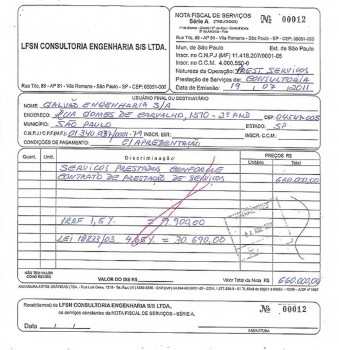 NOTA FISCAL DE SERVIÇOS
Série A
Nº 00012
LFSN CONSULTORIA ENGENHARIA S/S LTDA.
Rua Tito, 86 - Aptº 81 - Vila Romana - São Paulo - CEP: 05051-000
Mun. de São Paulo Est. de São Paulo
Inscr. no C.N.P.J (MF) 11.418.207/0001-05
Inscr. no C.C.M. 4.000.550-0
Natureza da Operação: PREST SERVIÇOS
Prestação de Serviços de CONSULTORIA
Data da Emissão: 19 / 07 / 2011
USUÁRIO FINAL OU DESTINATÁRIO
NOME: GALVÃO ENGENHARIA S/A
ENDEREÇO: RUA GOMES DE CARVALHO, 1510 - 2º AND CEP: 04547-005
MUNICÍPIO: SÃO PAULO ESTADO: SP
C.N.P.J/C.P.F.(MF): 01.340.937/0001-79 INSCR. EST.: INSCR. CCM.:
CONDIÇÕES DE PAGAMENTO: C/APRESENTAÇÃO
Quant. Unid. Discriminação PREÇOS R$
Unitário Total
SERVIÇOS PRESTADOS CONFORME
CONTRATO DE PRESTAÇÃO DE SERVIÇOS 660.000,00
IRRF 1,5% = 9.900,00
LEI 10833/03 4,65% = 30.690,00
NÃO TEM VALOR
COMO RECIBO
VALOR DO ISS R$ Valor Total da Nota R$ 660.000,00
Recebi(emos) de LFSN CONSULTORIA ENGENHARIA S/S LTDA.,
os serviços constantes da NOTA FISCAL DE SERVIÇOS - SÉRIE A.
Nº 00012
Data / /
ASSINATURA